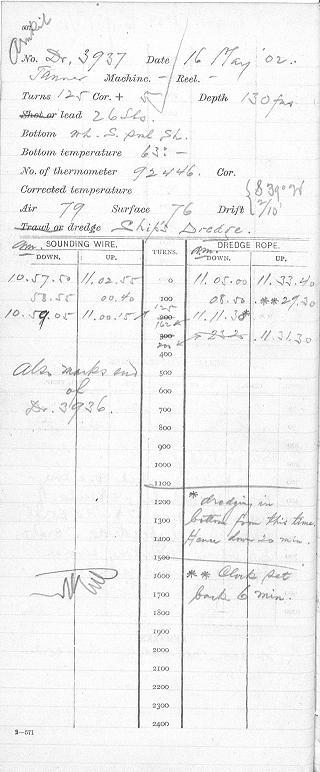 No. Dr. 3937 Date 16 May '02.
Tanner Machine. - Reel. -
Turns 125 Cor. + 5 Depth 130 fms
Shot or lead 26 Sbs.
Bottom wh. S. pnk Sh.
Bottom temperature 63: -
No. of thermometer 92446. Cor.
Corrected temperature
Air 79 Surface 76 Drift S 39° W 2/10'
Trawl or dredge Ship's Dredge.
am. SOUNDING WIRE. TURNS. am. DREDGE ROPE.
DOWN. UP. DOWN. UP.
10.57.50 11.02.55 0 11.05.00 11.33.40
58.55 00.40 100 08.50 **27.30
125
10.59.05 11.00.15 200 11.11.30*
162
300 23.20 11.31.30
200
400
Also marks end 500
of 600
Dr. 3936. 700
800
900
1000
1100
1200 * dredging in
1300 bottom from this time.
1400 Hence down 20 min.
1500
1600 ** Clock set
1700 back 6 min.
1800
1900
2000
2100
2200
2300
2400
3—571